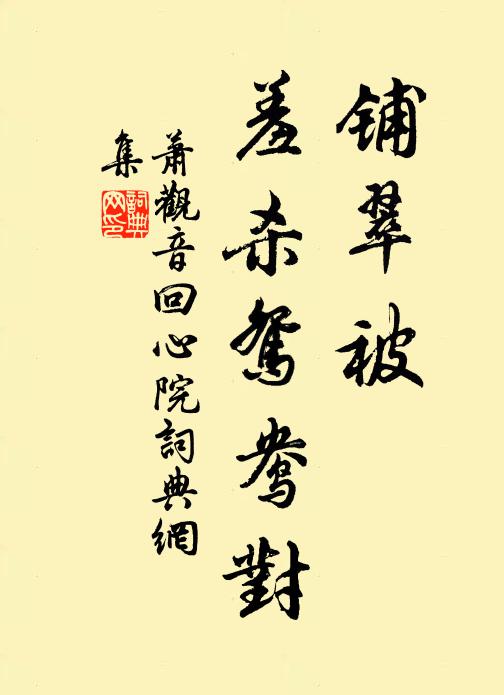 铺翠被
羞杀鸳鸯對
萧觀音回心院詞典網
集
詞典
网印